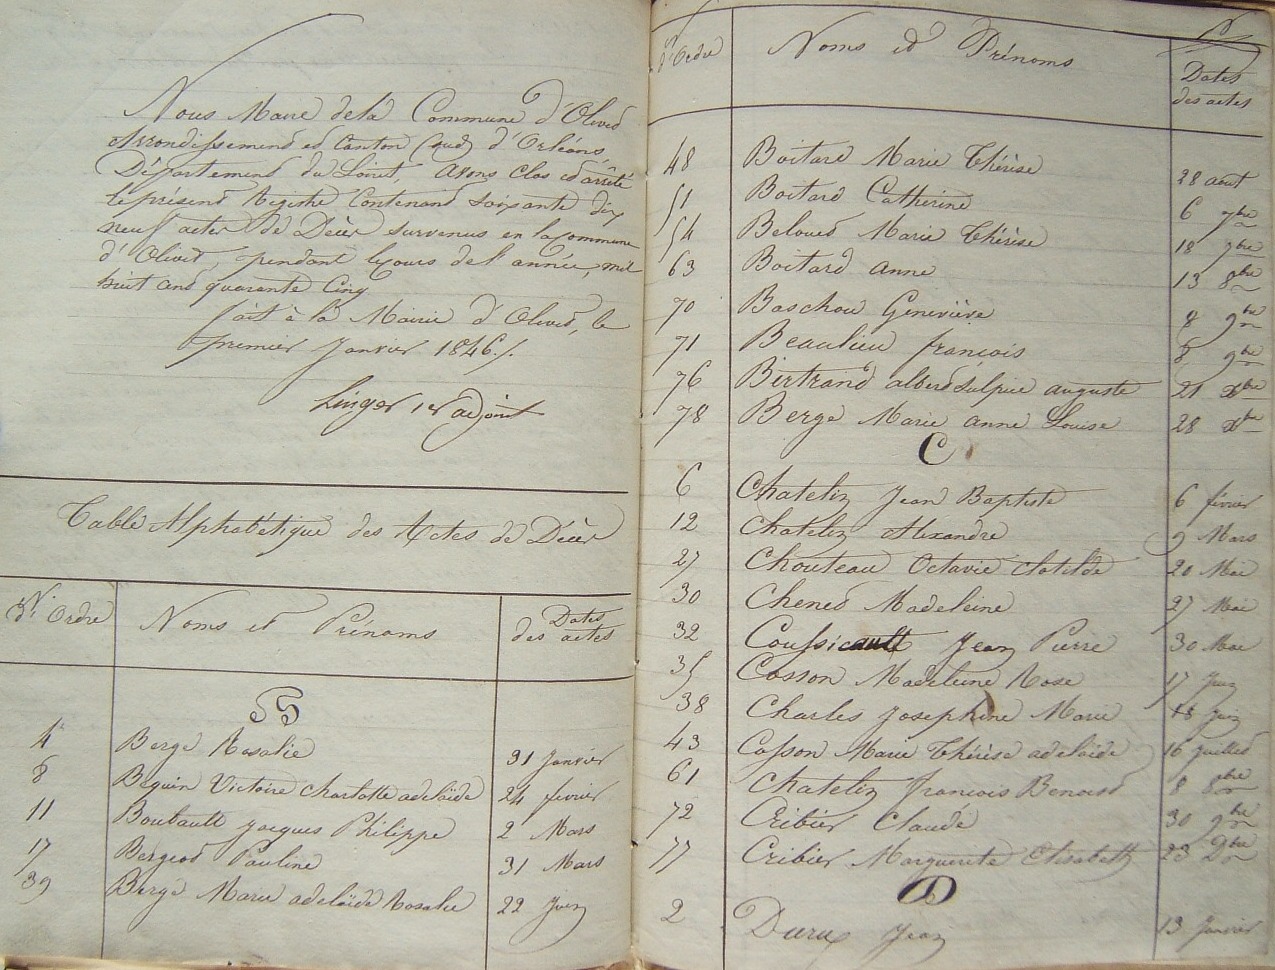 Nous Maire de la Commune d'Olivet
Arrondissement et Canton Sud d'Orléans
Département du Loiret avons clos et arrêté
le présent Registre Contenant soixante dix
neuf actes de Décès survenus en la commune
d'Olivet, pendant le cours de l'année, mil
huit cent quarante Cinq
fait à la Mairie d'Olivet, le
premier Janvier 1846.
1er adjoint
Table Alphabétique des Actes de Décès
Nos d'Ordre Noms et Prénoms Dates des actes
B
4 Berge Rosalie 31 Janvier
8 Beguin Victoire Charlotte adelaïde 24 fevrier
11 Boutault Jacques Philippe 2 Mars
17 Bergeot Pauline 31 Mars
39 Berge Marie adelaïde Rosalie 22 Juin
d'Ordre Noms et Prénoms Dates des actes
48 Boitard Marie Thérèse 28 aout
51 Boitard Catherine 6 7bre
54 Belouet Marie Thérèse 18 7bre
63 Boitard anne 13 8bre
70 Baschou Geneviève 8 9bre
71 Beaulieu françois 8 9bre
76 Bertrand albert Sulpice auguste 21 Xbre
78 Berge Marie anne Louise 28 Xbre
C
6 Chatelin Jean Baptiste 6 février
12 Chatelin Alexandre 9 Mars
27 Chouteau Octavie Clotilde 20 Mai
30 Chenet Madeleine 27 Mai
32 Coussicault Jean Pierre 30 Mai
35 Cosson Madeleine Rose 17 Juin
38 Charles Josephine Marie 18 Juin
43 Cosson Marie Thérèse adelaïde 16 Juillet
61 Chatelin francois Benoist 8 8bre
72 Cribier Claude 30 9bre
77 Cribier Marguerite Elisabeth 23
D
2 Jean 13 Janvier